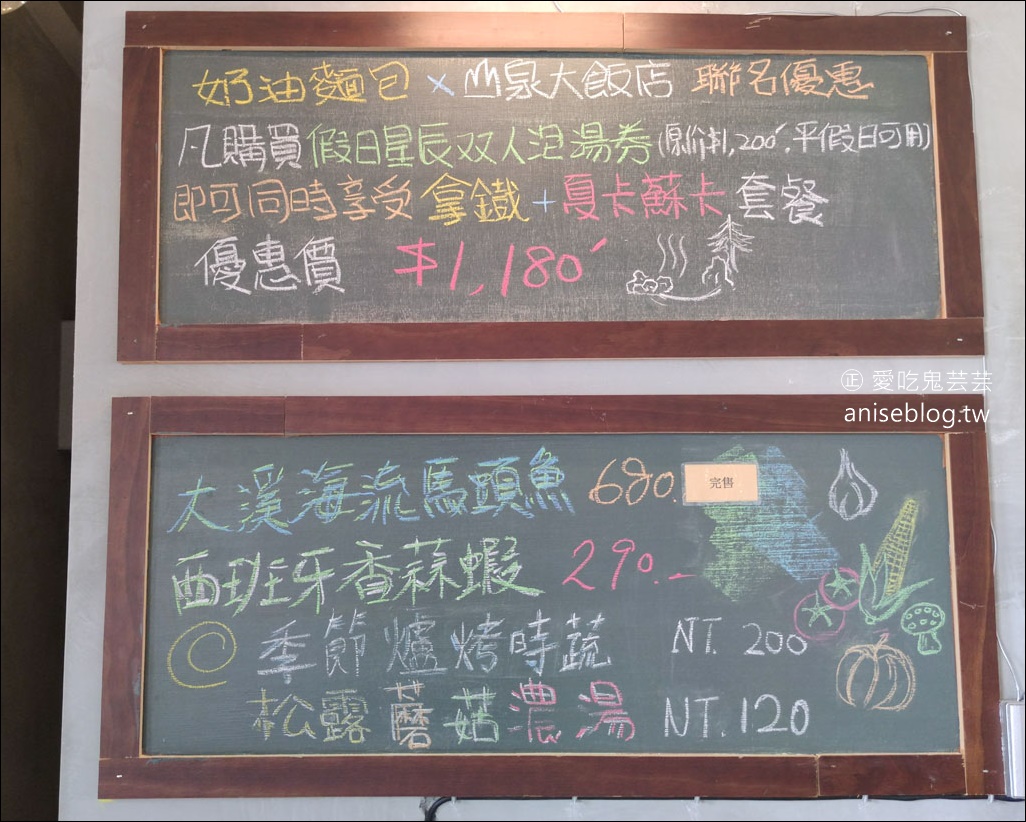 奶油麵包 × 山泉大飯店 聯名優惠
凡購買假日星辰双人泡湯券(原價1,200´,平假日可用)
即可同時享受拿鐵+夏卡蘇卡套餐
優惠價 $1,180´
正 愛吃鬼芸芸
aniseblog.tw
大溪海流馬頭魚 680. 完售
西班牙香蒜蝦 290.-
季節爐烤時蔬 NT. 200
松露蘑菇濃湯 NT. 120